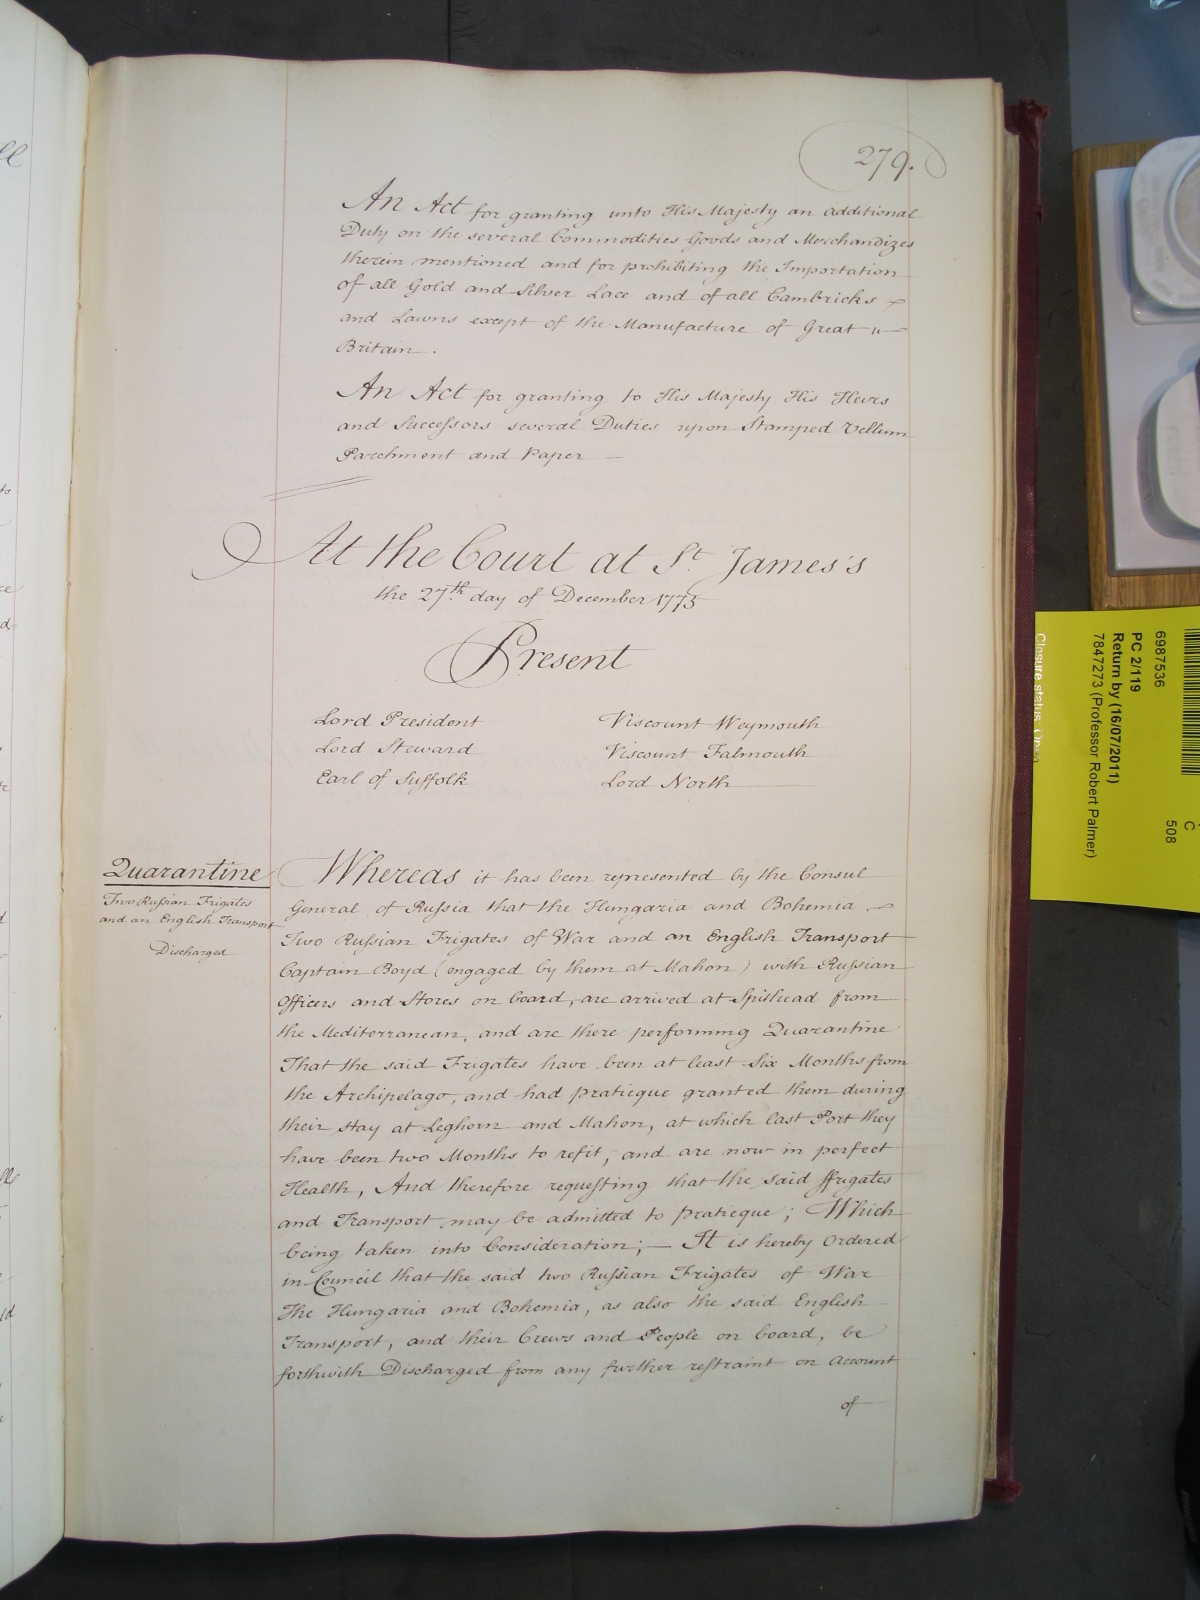 279.
An Act for granting unto His Majesty an additional
Duty on the several Commodities Goods and Merchandizes
therein mentioned and for prohibiting the Importation
of all Gold and Silver Lace and of all Cambricks
and Lawns except of the Manufacture of Great
Britain.
An Act for granting to His Majesty His Heirs
and Successors several Duties upon Stamped Vellum
Parchment and Paper
At the Court at St. James's
the 27th day of December 1775
Present
Lord President
Lord Steward
Earl of Suffolk
Viscount Weymouth
Viscount Falmouth
Lord North
Quarantine
Two Russian Frigates
and an English Transport
Discharged
Whereas it has been represented by the Consul
General of Russia that the Hungaria and Bohemia
Two Russian Frigates of War and an English Transport
Captain Boyd (engaged by them at Mahon) with Russian
Officers and Stores on board, are arrived at Spithead from
the Mediterranean, and are there performing Quarantine
That the said Frigates have been at least Six Months from
the Archipelago, and had pratieque granted them during
their stay at Leghorn and Mahon, at which last Port they
have been two Months to refit, and are now in perfect
Health, And therefore requesting that the said ffrigates
and Transport may be admitted to pratieque; Which
being taken into Consideration;— It is hereby ordered
in Council that the said two Russian Frigates of War
The Hungaria and Bohemia, as also the said English
Transport, and their Crews and People on board, be
forthwith Discharged from any further restraint on account
of
6987536
PC 2/119
Return by (16/07/2011)
7847273 (Professor Robert Palmer)
Closure status: Open
C
508